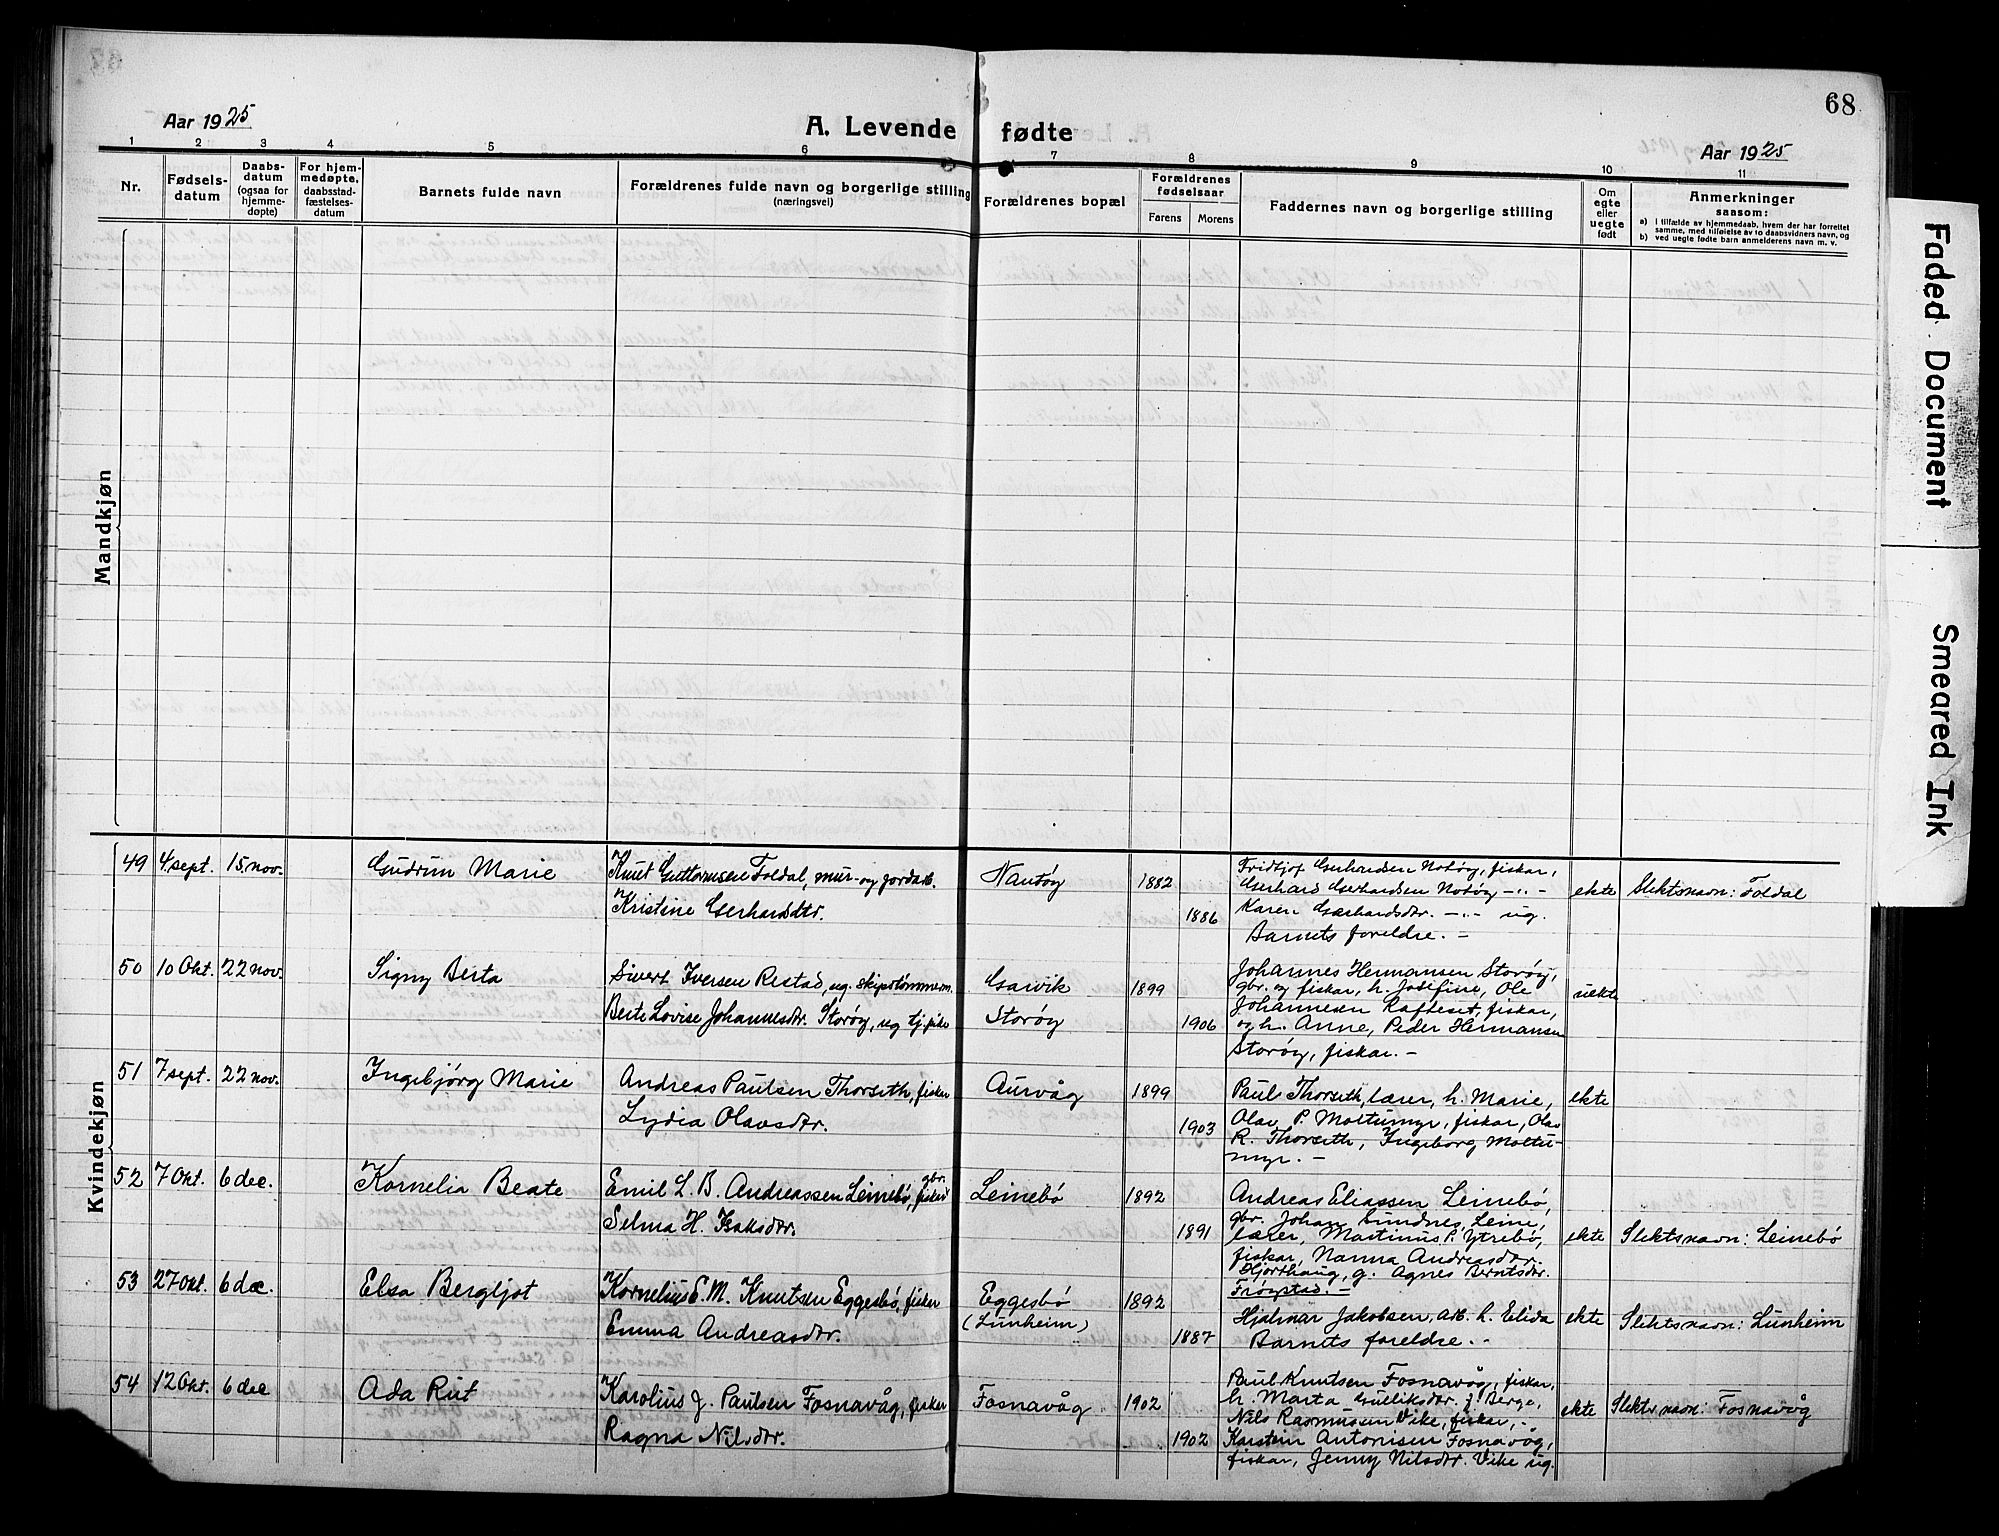 68
Aar 1925
A. Levende fødte
Aar 1925
1 2 3 4 5 6 7 8 9 10 11
Nr.
Fødsels-
datum
Daabs-
datum
(ogsaa for
hjemme-
døpte)
For hjem-
medøpte,
daabsstad-
fæstelses-
datum
Barnets fulde navn
Forældrenes fulde navn og borgerlige stilling
(næringsvei)
Forældrenes bopæl
Forældrenes
fødselsaar
Farens
Morens
Faddernes navn og borgerlige stilling
Om
egte
eller
uegte
født
Anmerkninger
saasom:
a) i tilfælde av hjemmedaab, hvem der har forrettet
samme, med tilføielse av to daabsvidners navn, og
b) ved uegte fødte barn anmelderens navn m. v.
Mandkjøn
Kvindekjøn
49 4. sept. 15. nov.
Gudrun Marie
Knut Guttormsen Foldal, mur- og jordarb.
Kristine Gerhardsdtr.
Nautøy
1882
1886
Fridtjof Gerhardsen Notøy, fiskar,
Gerhard Gerhardsen Notøy -"-
Karen Gerhardsdtr. -"- ug.
Barnets foreldre. -
ekte
Slektsnavn: Foldal
50 10 Okt. 22 nov.
Signy Berta
Sivert Iversen Ristad, ug. skipstømmerm.
Berte Lovise Johannesdtr. Storøy, ug tj. pike
Garvik
Storøy
1899
1906
Johannes Hermansen Storøy,
gbr. og fiskar, h. Josefine, Ole
Johannesen Rafteset, fiskar,
og h. Anne, Peder Hermansen
Storøy, fiskar. -
uekte
51 7 sept. 22 nov.
Ingebjørg Marie
Andreas Paulsen Thorseth, fisker
Lydia Olavsdtr.
Aurvåg
1899
1903
Paul Thorseth, lærer, h. Marie,
Olav P. Moltumyr, fiskar, Olav
R. Thorseth, Ingeborg Moltu-
myr. -
ekte
52 7 Okt. 6 dec.
Kornelia Beate
Emil L. B. Andreassen Leinebø, gbr. fisker
Selma H. Isaksdtr.
Leinebø
1892
1891
Andreas Eliassen Leinebø,
gbr. Johan Sundnes, Leine,
lærer, Martinus P. Ytrebø,
fiskar, Nanna Andreasdtr.
Hjorthaug, g. Agnes Berntsdtr.
Frøystad. -
ekte
Slektsnavn: Leinebø
53 27 Okt. 6 dec.
Elsa Bergljot
Kornelius E. M. Knutsen Eggesbø, fisker
Emma Andreasdtr.
Eggesbø
(Lunheim)
1892
1887
Hjalmar Jakobsen, arb. h. Elida
Barnets foreldre. -
ekte
Slektsnavn: Lunheim
54 12 Okt. 6 dec
Ada Rut
Karolius J. Paulsen Fosnavåg, fisker
Ragna Nilsdtr.
Fosnavåg
1902
1902
Paul Knutsen Fosnavåg, fiskar,
h. Marta Gulliksdtr. f. Berge,
Nils Rasmussen Vike, fiskar, -
Karstein Antonisen Fosnavåg,
fiskar, Jenny Nilsdtr. Vike ug.
ekte
Slektsnavn: Fosnavåg
Faded Document
Smeared Ink